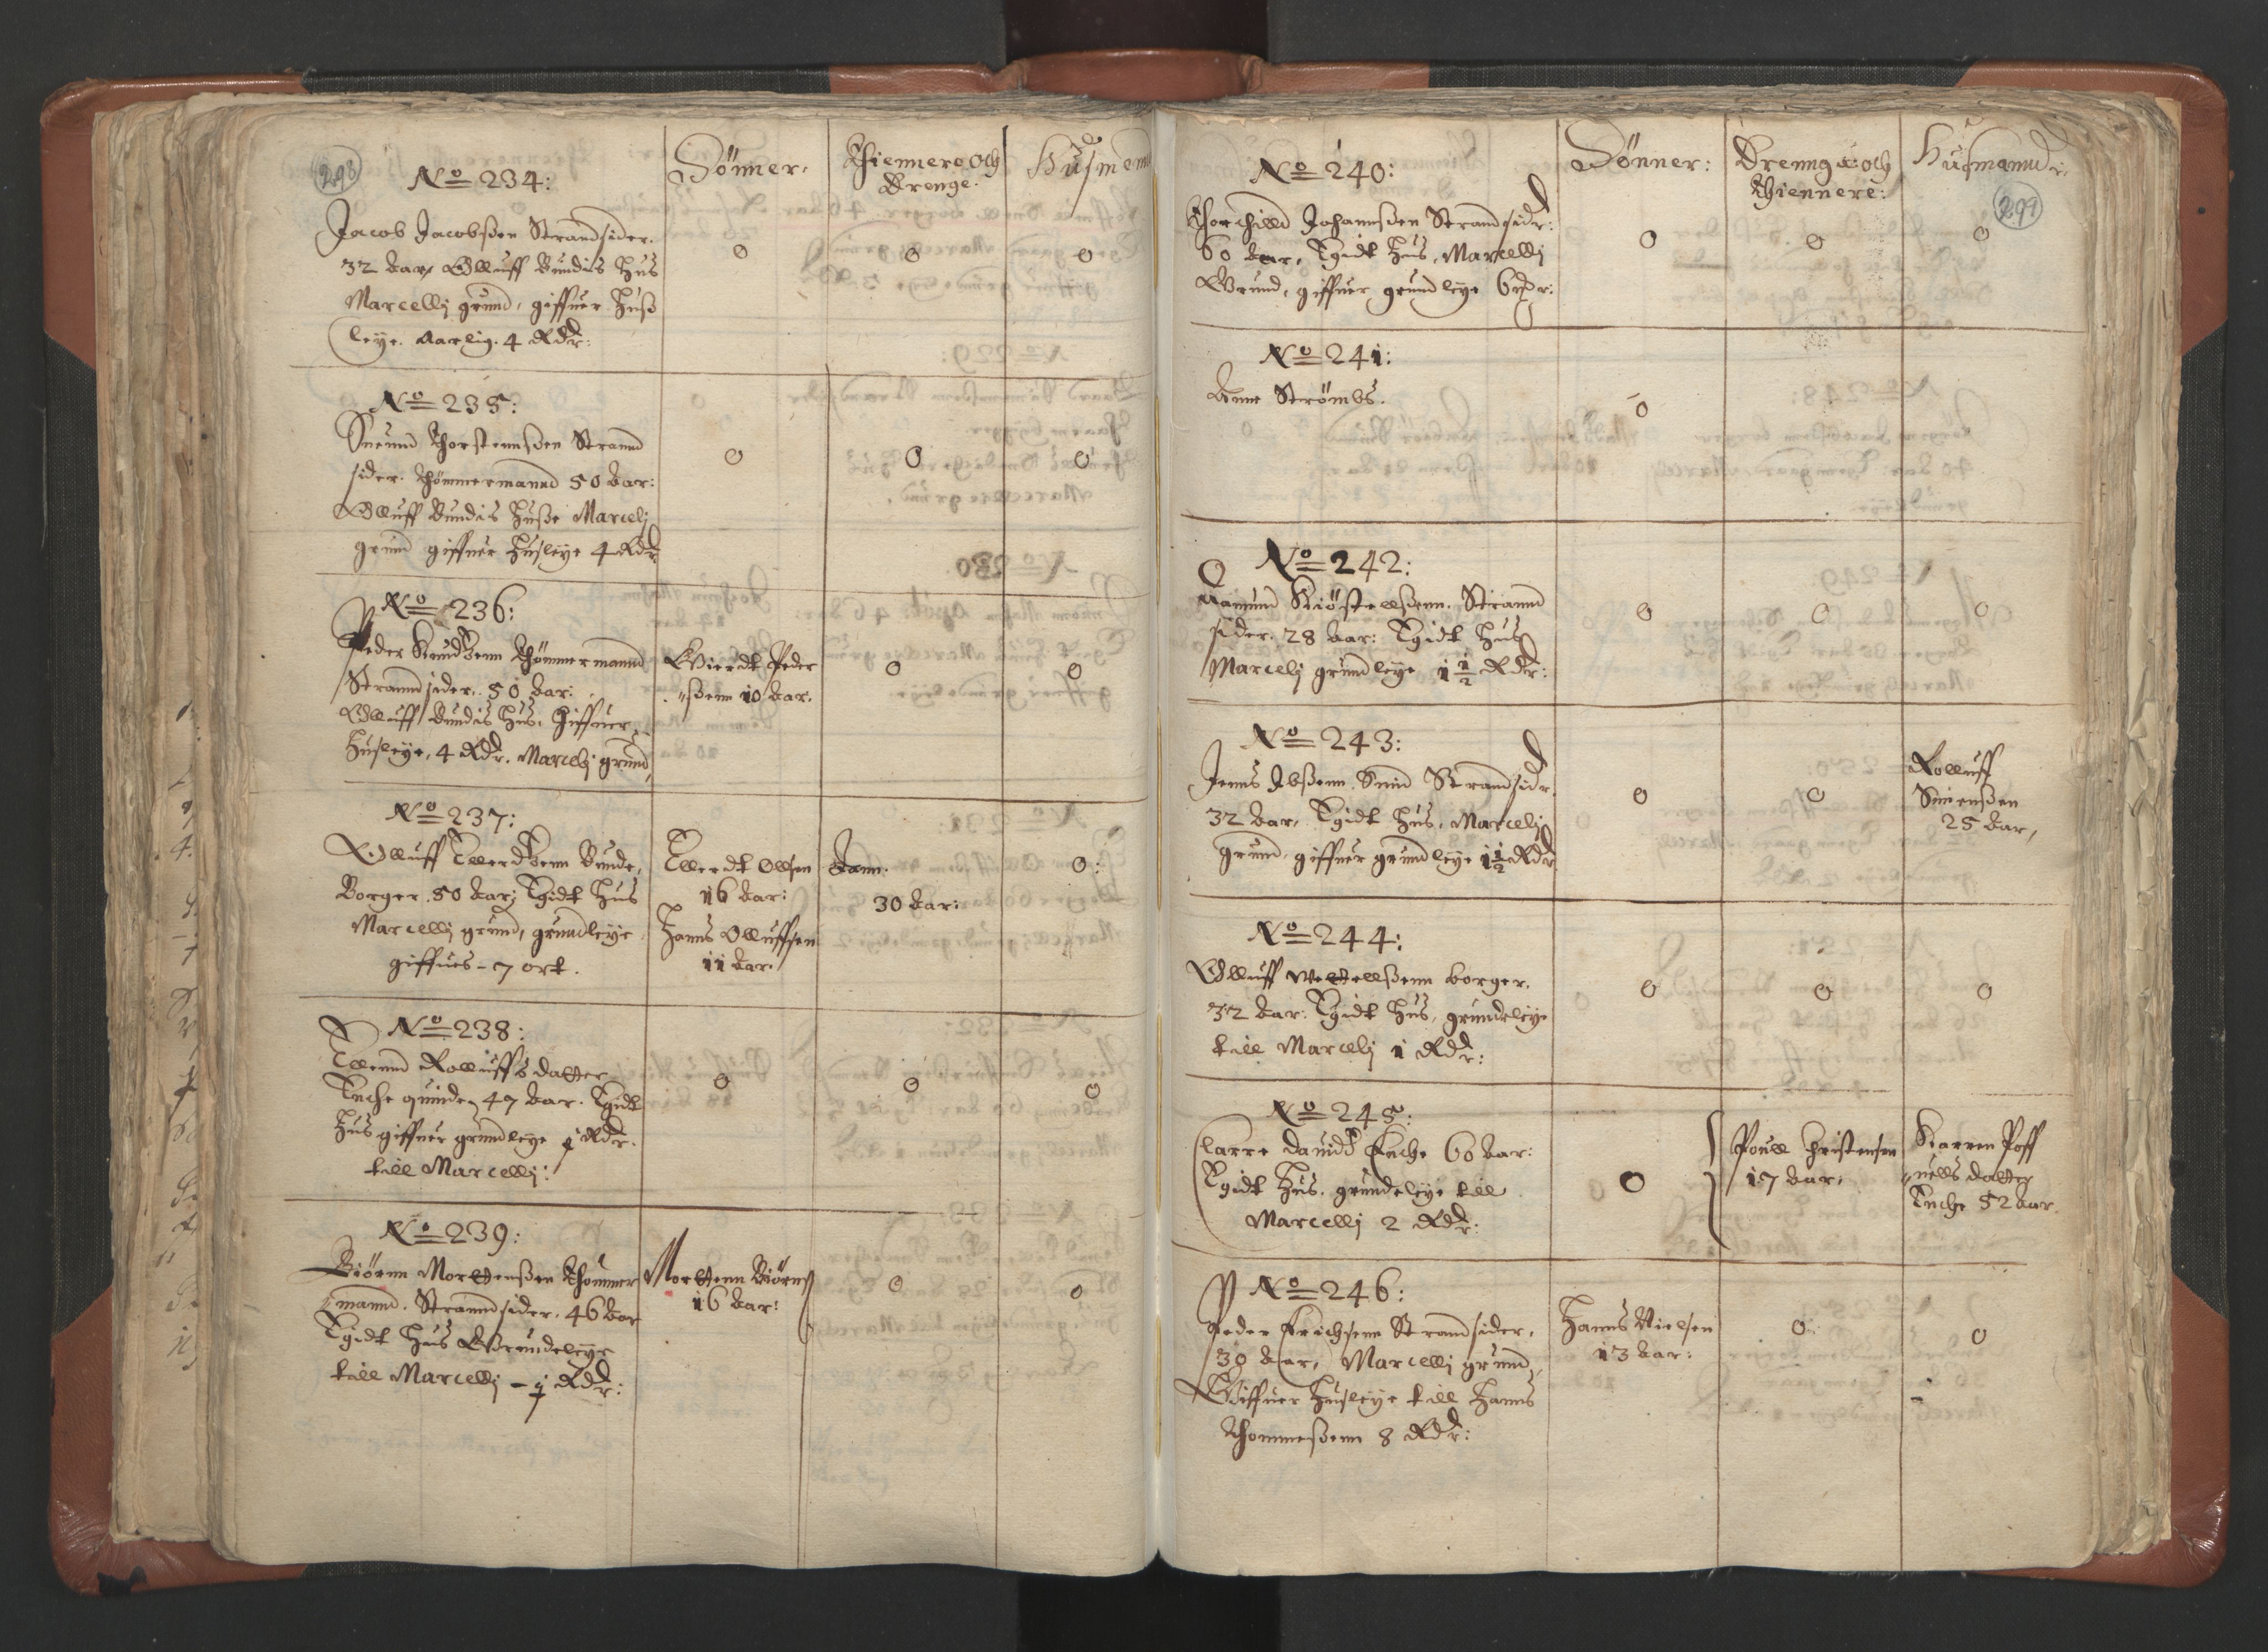 293
No 234:
Sönner.
Thiennere och
Drenge.
Husmend
Jacob Jacobßen Strandsider.
32 Aar, Olluff Bundis Hus
Marcellj grund, giffuer Huß
leye. Aarlig. 4 Rdr:
0
0
0
No 235:
Suennd Thorstennßen Strannd
sider. Thömmermannd 50 Aar:
Olluff Bundis Huße Marcelj
grund giffuer Husleye 4 Rdr
0
0
0
No 236:
Peder Knudßenn Thömmermannd
Strannd sider. 50 Aar:
Olluff Bundis Hus. Giffuer
Husleye, 4 Rdr. Marcelj grund,
Eвierdt Peder
ßenn 10 Aar.
0
0
No 237:
Olluff Ellerdßenn Bunde,
Borger. 50 Aar; Egidt Hus
Marcellj grund, grundleye
giffues - 7 ort.
Ellerdt Ollsen
16 Aar:
Hanns Olluffsen
11 Aar.
30 Aar:
0:
No 238:
Ellennd Rolluffs datter
Enche quinde, 47 Aar. Egidt
Hus giffuer grundleye 1 Rdr.
till Marcellj:
0
0
0
No 239:
Biörnn Mortennßen Thömmer
mannd. Strannd sider. 46 Aar
Egidt Hus Grundeleye
till Marcellj - 1 Rdr:
Mortenn Biörns
16 Aar:
0
0
No 240:
Sönner:
Drennge: och
Thiennere:
Husmannd
299
Thorchilld Johannßen Strandsidr:
60 Aar, Egidt Hus, Marcellj
Grund, giffuer grundleye
0
0
0
No 241:
Anne Ströмbs.
0
No 242:
Aamund Kiöstellßenn. Strannd
sider. 28 Aar: Egidt Hus
Marcelj grundleye 1 1/2 Rdr:
0
0
0
No 243:
Jenns Ibßenn Smid Strandsidr.
32 Aar, Egidt Hus, Marcelj
grund, giffuer grundleye 1 1/2 Rdr
0
0
Rolluff
Simenßen
25 Aar,
No 244:
Olluff Wettellßenn borger.
32 Aar: Egidt Hus, grundeleye
till Marcelj 1 Rdr:
0
0
0
No 245:
Larre Dauidß Enche 60 Aar:
Egidt Hus. grundeleye till
Marcellj 2 Rdr:
0
Pouell Christensen
17 Aar,
Karren Poff
uells datter
Enche 52 Aar.
No 246:
Peder Erichsenn Strandsider,
30 Aar, Marcellj grund,
Giffuer Husleye till Hanns
Thommeßenn 8 Rdr:
Hanns Nielsen
13 Aar:
0
0